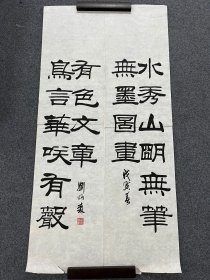 水秀山朙無筆
無墨圖畫
戊寅夏
鳥言華咲有聲
有色文章
劉